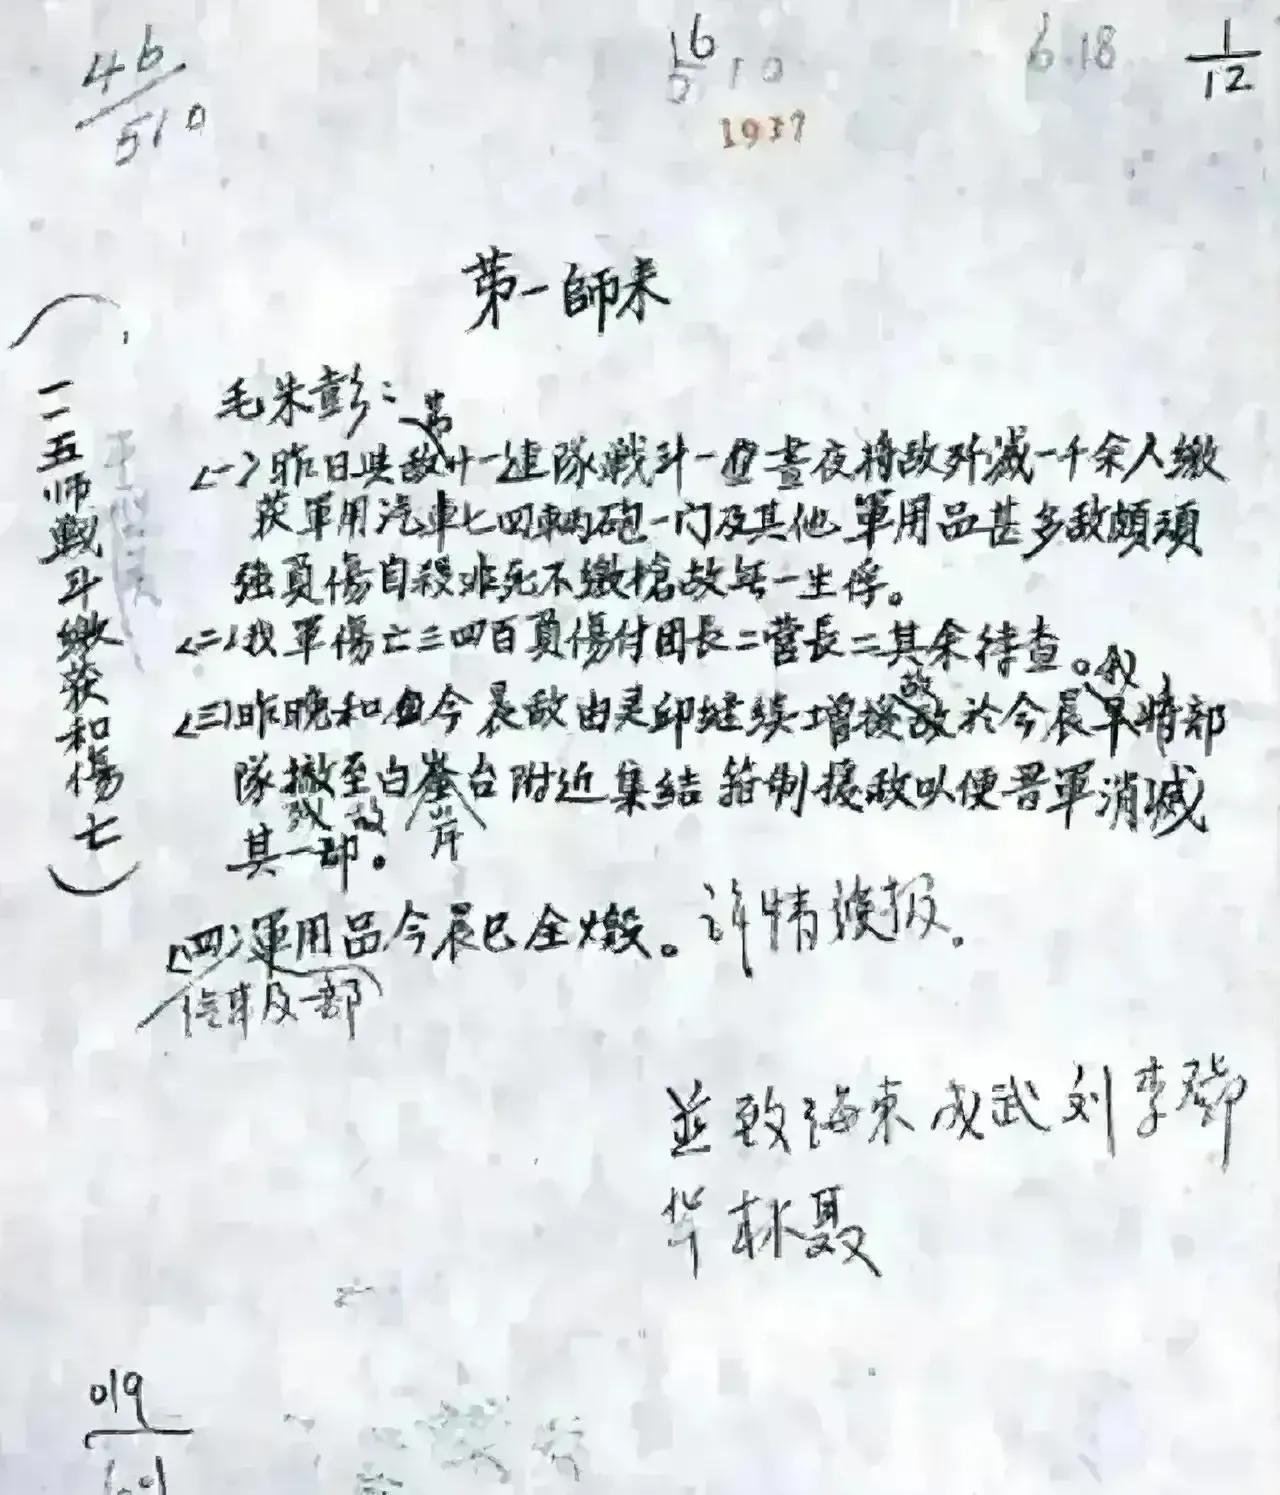 46
510
16
10
6.18
1
12
1937
第一師来
(一一五师戰斗缴获和傷亡)
毛朱彭:
(一)昨日與敵廿一連隊戰斗一晝夜將敌歼滅一千余人繳
获軍用汽車七四車两砲一门及其他軍用品甚多敵頗頑
強負傷自殺非死不缴槍故無一生俘。
(二)我軍傷亡三四百負傷付团長二营長二其余待查。我
故
(三)昨晚和今晨敵由灵邱继续增援故於今晨早将部
隊撤至白崖台附近集結箝制援敌以便晋軍消滅
其一部。
(四)軍用品今晨已全燬。详情後报。
汽車及一部
並致海東成武刘李鄧
华 林聂
019